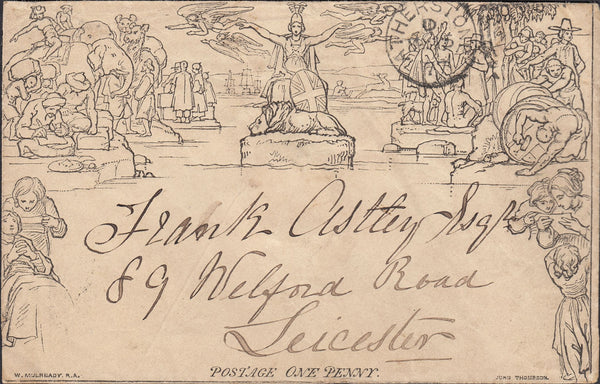 ATHERSTONE
Frank Astley Esqr
89 Welford Road
Leicester
POSTAGE ONE PENNY.
W. MULREADY. R.A.
JOHN THOMPSON.